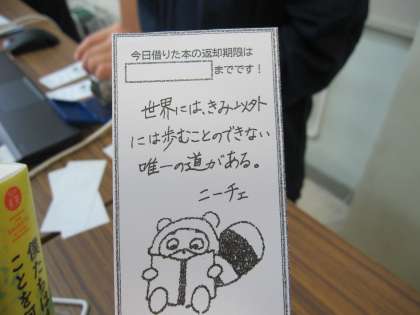 今日借りた本の返却期限は
までです！
世界には、きみ以外
には歩むことのできない
唯一の道がある。
ニーチェ
僕たちは
ことを